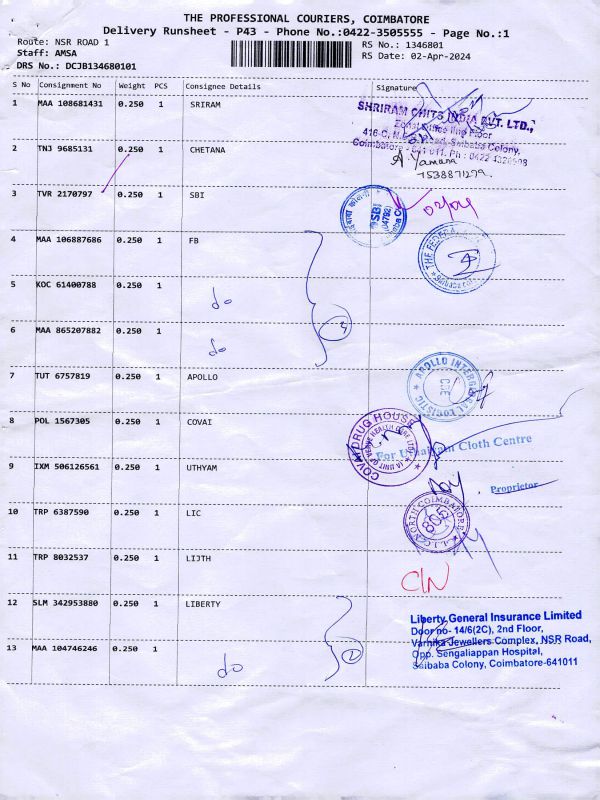 THE PROFESSIONAL COURIERS, COIMBATORE
Delivery Runsheet - P43 - Phone No.:0422-3505555 - Page No.:1
Route: NSR ROAD 1
RS No.: 1346801
Staff: AMSA
RS Date: 02-Apr-2024
DRS No.: DCJB134680101
S No Consignment No Weight PCS Consignee Details Signature
1 MAA 108681431 0.250 1 SRIRAM
SHRIRAM CHITS INDIA PVT. LTD.,
2 TNJ 9685131 0.250 1 CHETANA
A. Yamana
3 TVR 2170797 0.250 1 SBI
SBI
02/04
4 MAA 106887686 0.250 1 FB
THE FEDERAL
5 KOC 61400788 0.250 1
do
3
6 MAA 865207882 0.250 1
do
7 TUT 6757819 0.250 1 APOLLO
8 POL 1567305 0.250 1 COVAI
COVAI DRUG HOUSE
Cloth Centre
9 IXM 506126561 0.250 1 UTHYAM
Proprietor
10 TRP 6387590 0.250 1 LIC
NORTH COIMBATORE
11 TRP 8032537 1 LIJTH
12 SLM 342953880 0.250 1 LIBERTY
Liberty General Insurance Limited
Door no- 14/6(2C), 2nd Floor,
Varnika Jewellers Complex, NSR Road,
Opp. Sengaliappan Hospital,
Saibaba Colony, Coimbatore-641011
13 MAA 104746246 0.250 1
do
2